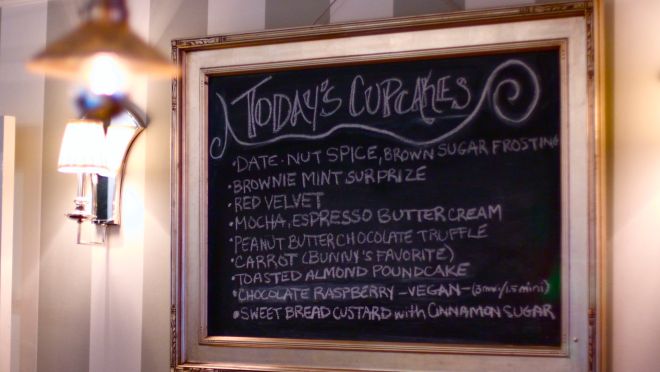 TODAY'S CUPCAKES
• DATE-NUT SPICE, BROWN SUGAR FROSTING
• BROWNIE MINT SURPRIZE
• RED VELVET
• MOCHA, ESPRESSO BUTTERCREAM
• PEANUT BUTTER CHOCOLATE TRUFFLE
• CARROT (BUNNY'S FAVORITE)
• TOASTED ALMOND POUNDCAKE
• CHOCOLATE RASPBERRY -VEGAN- (3 /1.5 mini)
• SWEET BREAD CUSTARD with CINNAMON SUGAR